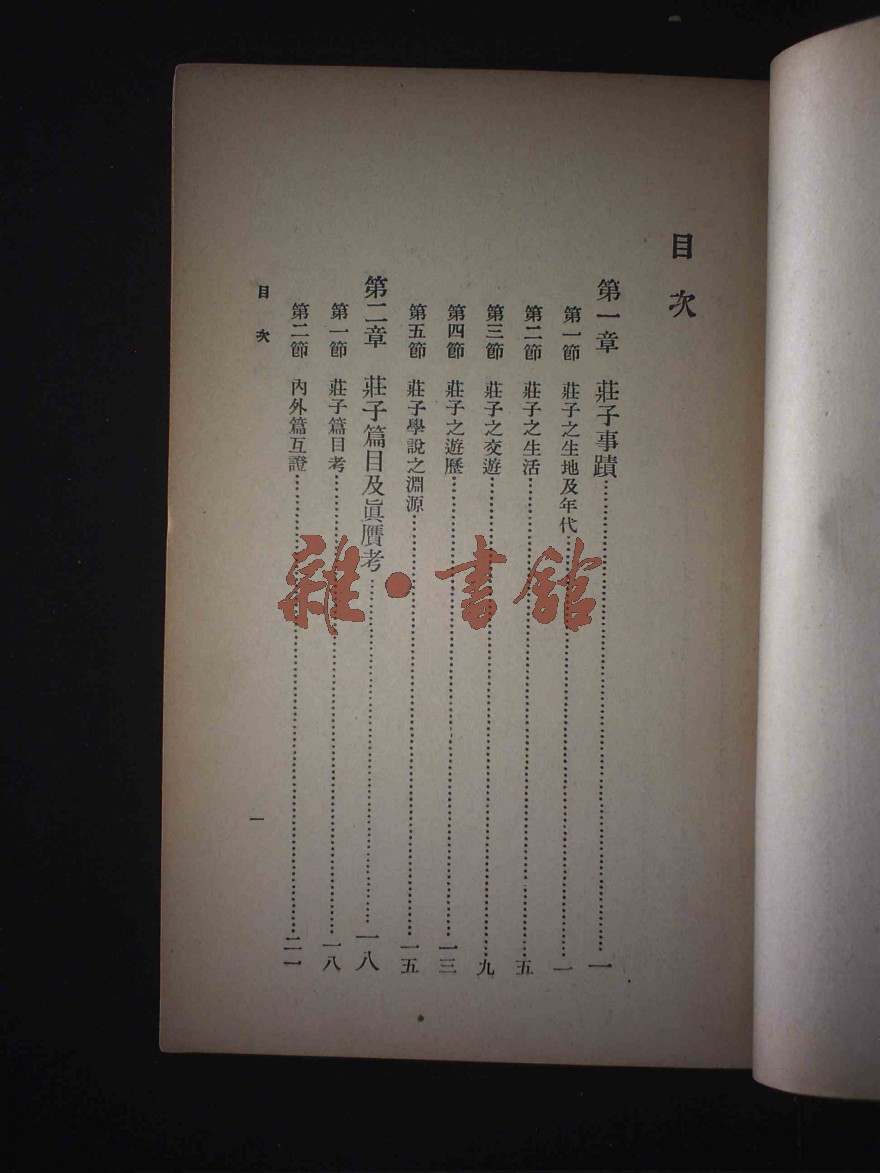 目次
第一章 莊子事蹟……一
第一節 莊子之生地及年代……一
第二節 莊子之生活……五
第三節 莊子之交遊……九
第四節 莊子之遊歷……一三
第五節 莊子學說之淵源……一五
第二章 莊子篇目及眞贋考……一八
第一節 莊子篇目考……一八
第二節 內外篇互證……二一
目次 一
雜·書館